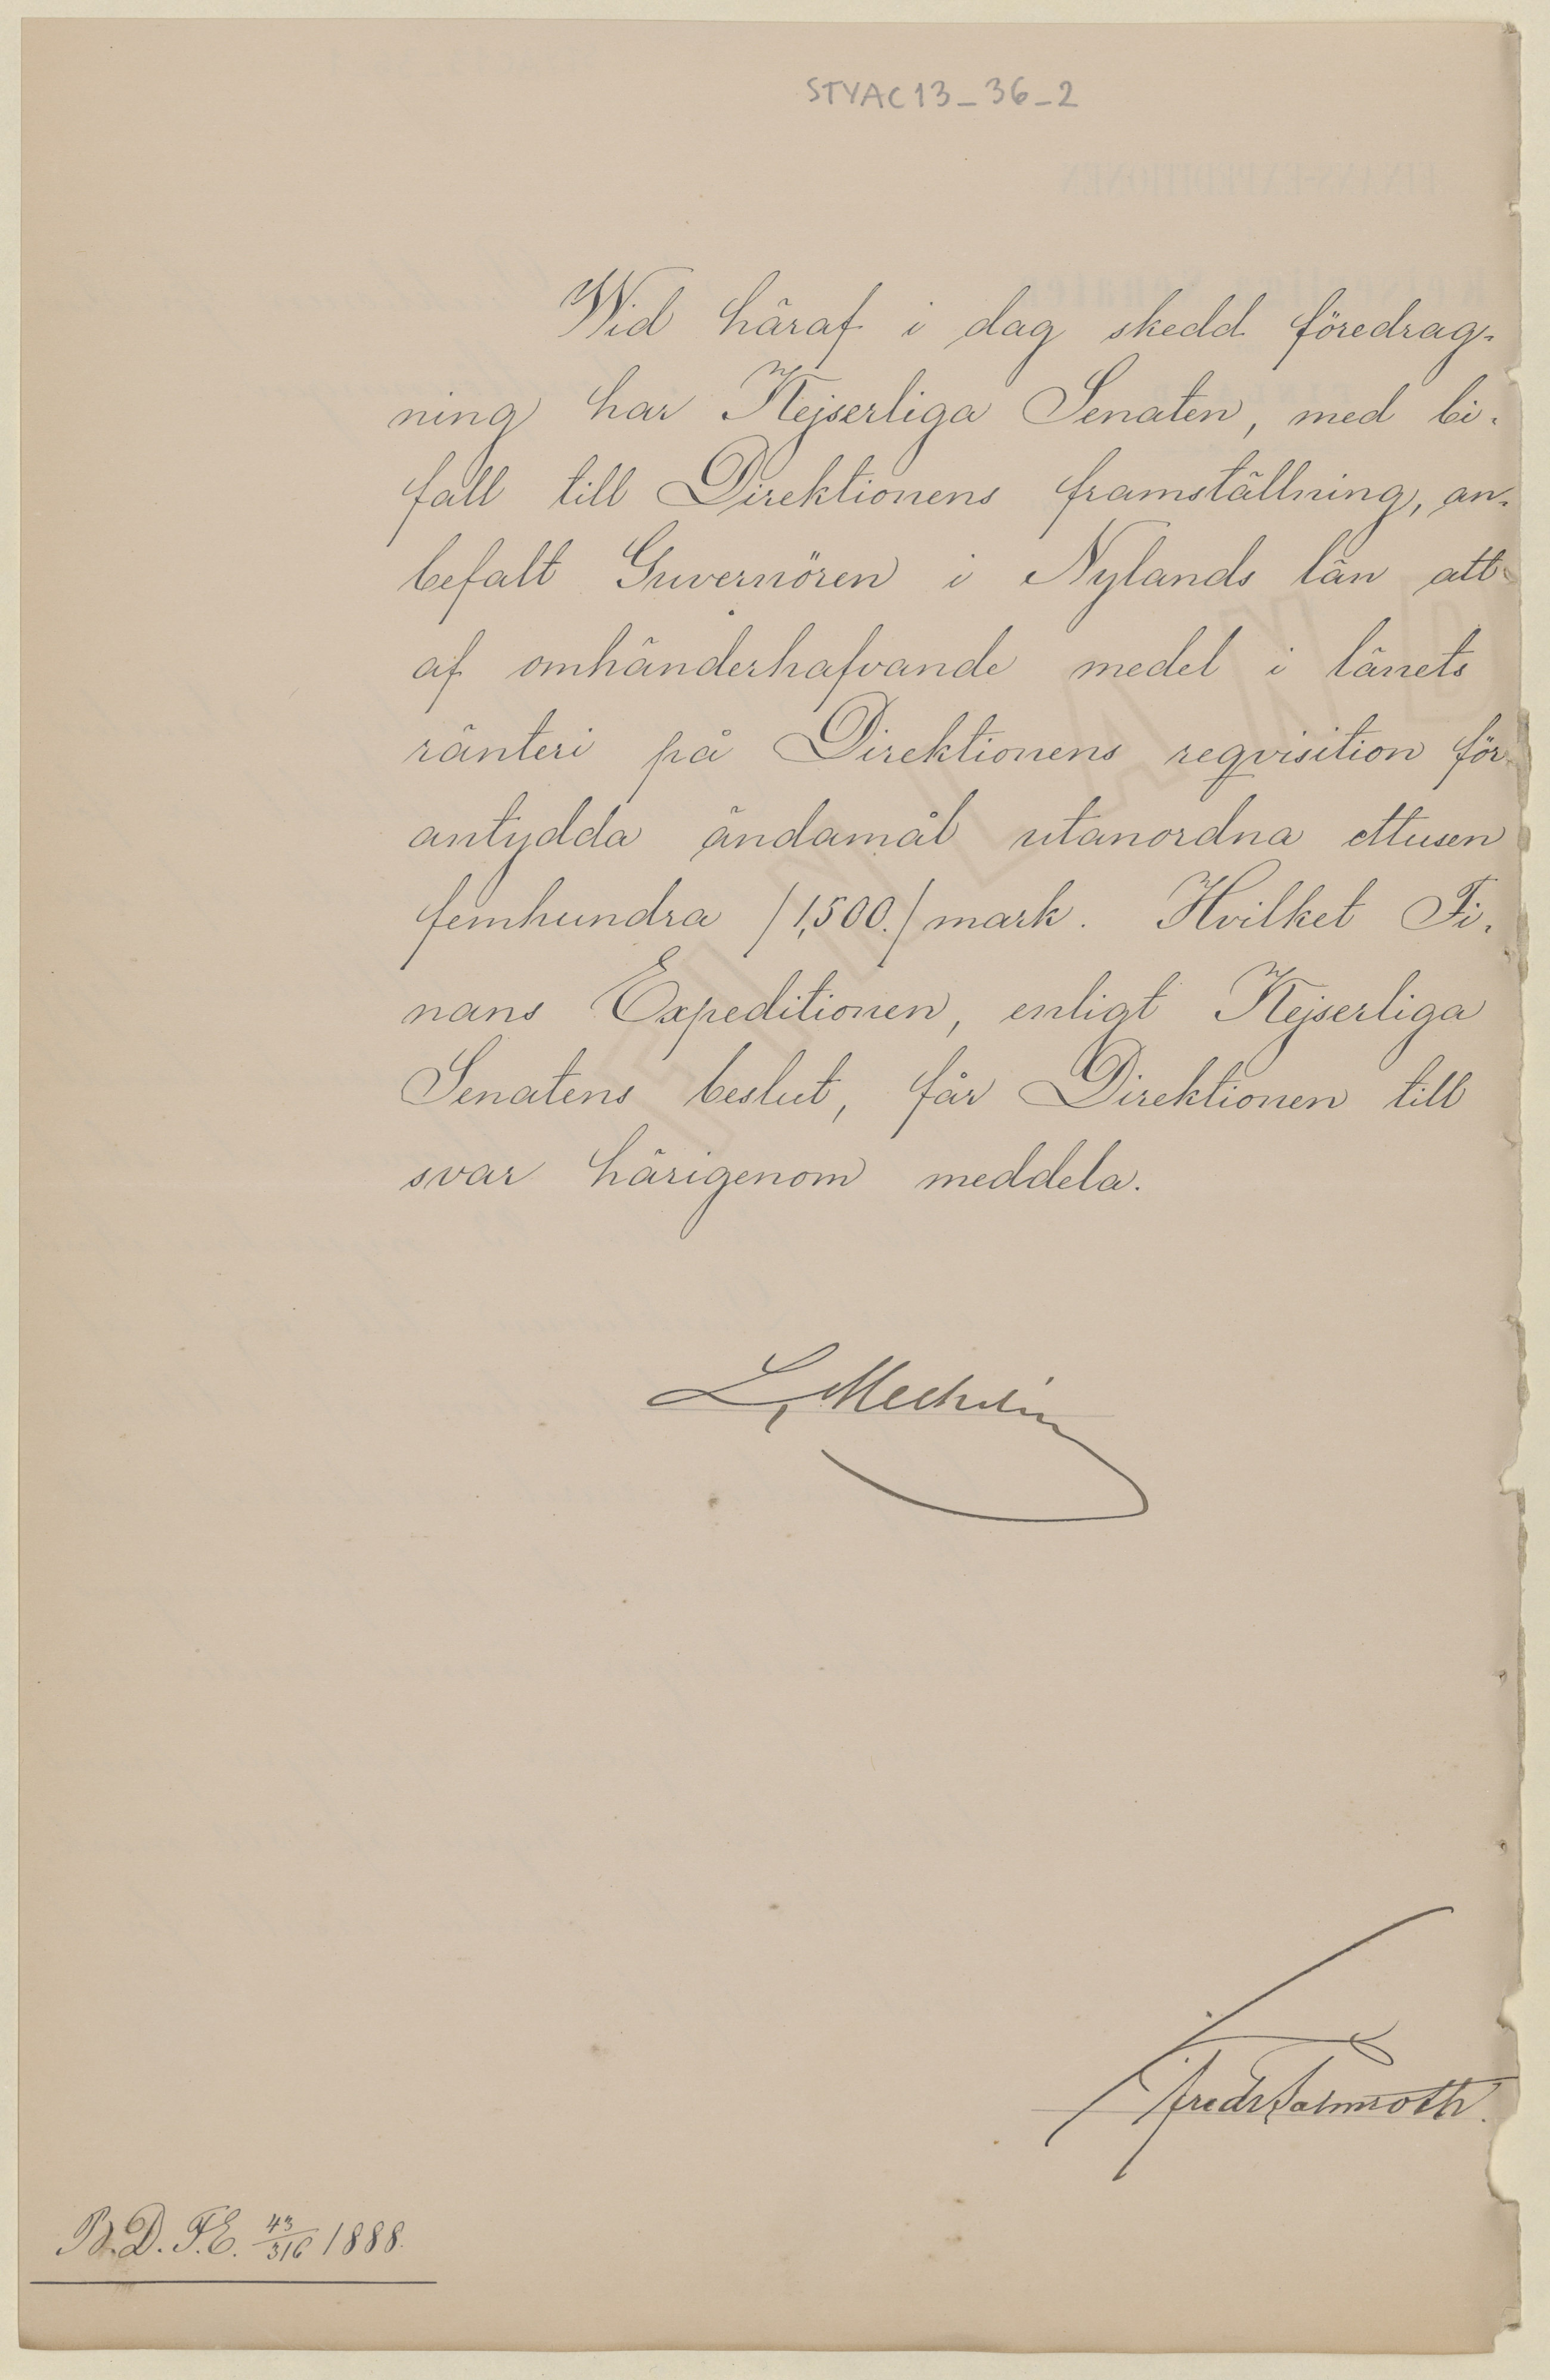 STYAC13_36_2
Wid häraf i dag skedd föredrag-
ning har Kejserliga Senaten, med bi-
fall till Direktionens framställning, an-
befalt Guvernören i Nylands län att
af omhänderhafvande medel i länets
ränteri på Direktionens reqvisition för
antydda ändamål utanordna ettusen
femhundra /1,500./ mark. Hvilket Fi-
nans Expeditionen, enligt Kejserliga
Senatens beslut, får Direktionen till
svar härigenom meddela.
L. Mechelin
B.D. F.E. 43/316 1888.